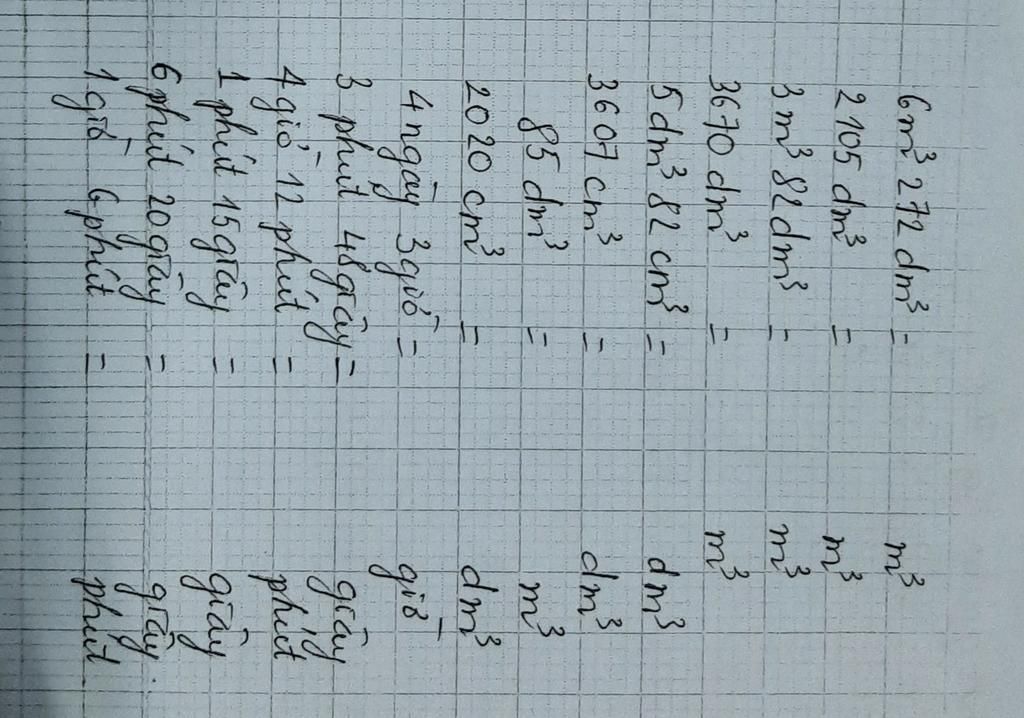 6m³ 272 dm³ = m³
2105 dm³ = m³
3 m³ 82 dm³ = m³
3670 dm³ = m³
5 dm³ 82 cm³ = dm³
3607 cm³ = dm³
85 dm³ = m³
2020 cm³ = dm³
4 ngày 3 giờ = giờ
3 phút 48 giây = giây
4 giờ 12 phút = phút
1 phút 15 giây = giây
6 phút 20 giây = giây.
1 giờ 6 phút = phút.